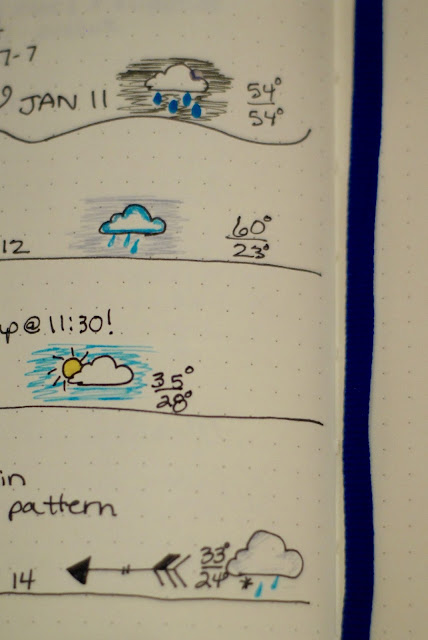 7-7
JAN 11
54°
54°
12
60°
23°
up @ 11:30!
35°
28°
in
pattern
14
33°
24°